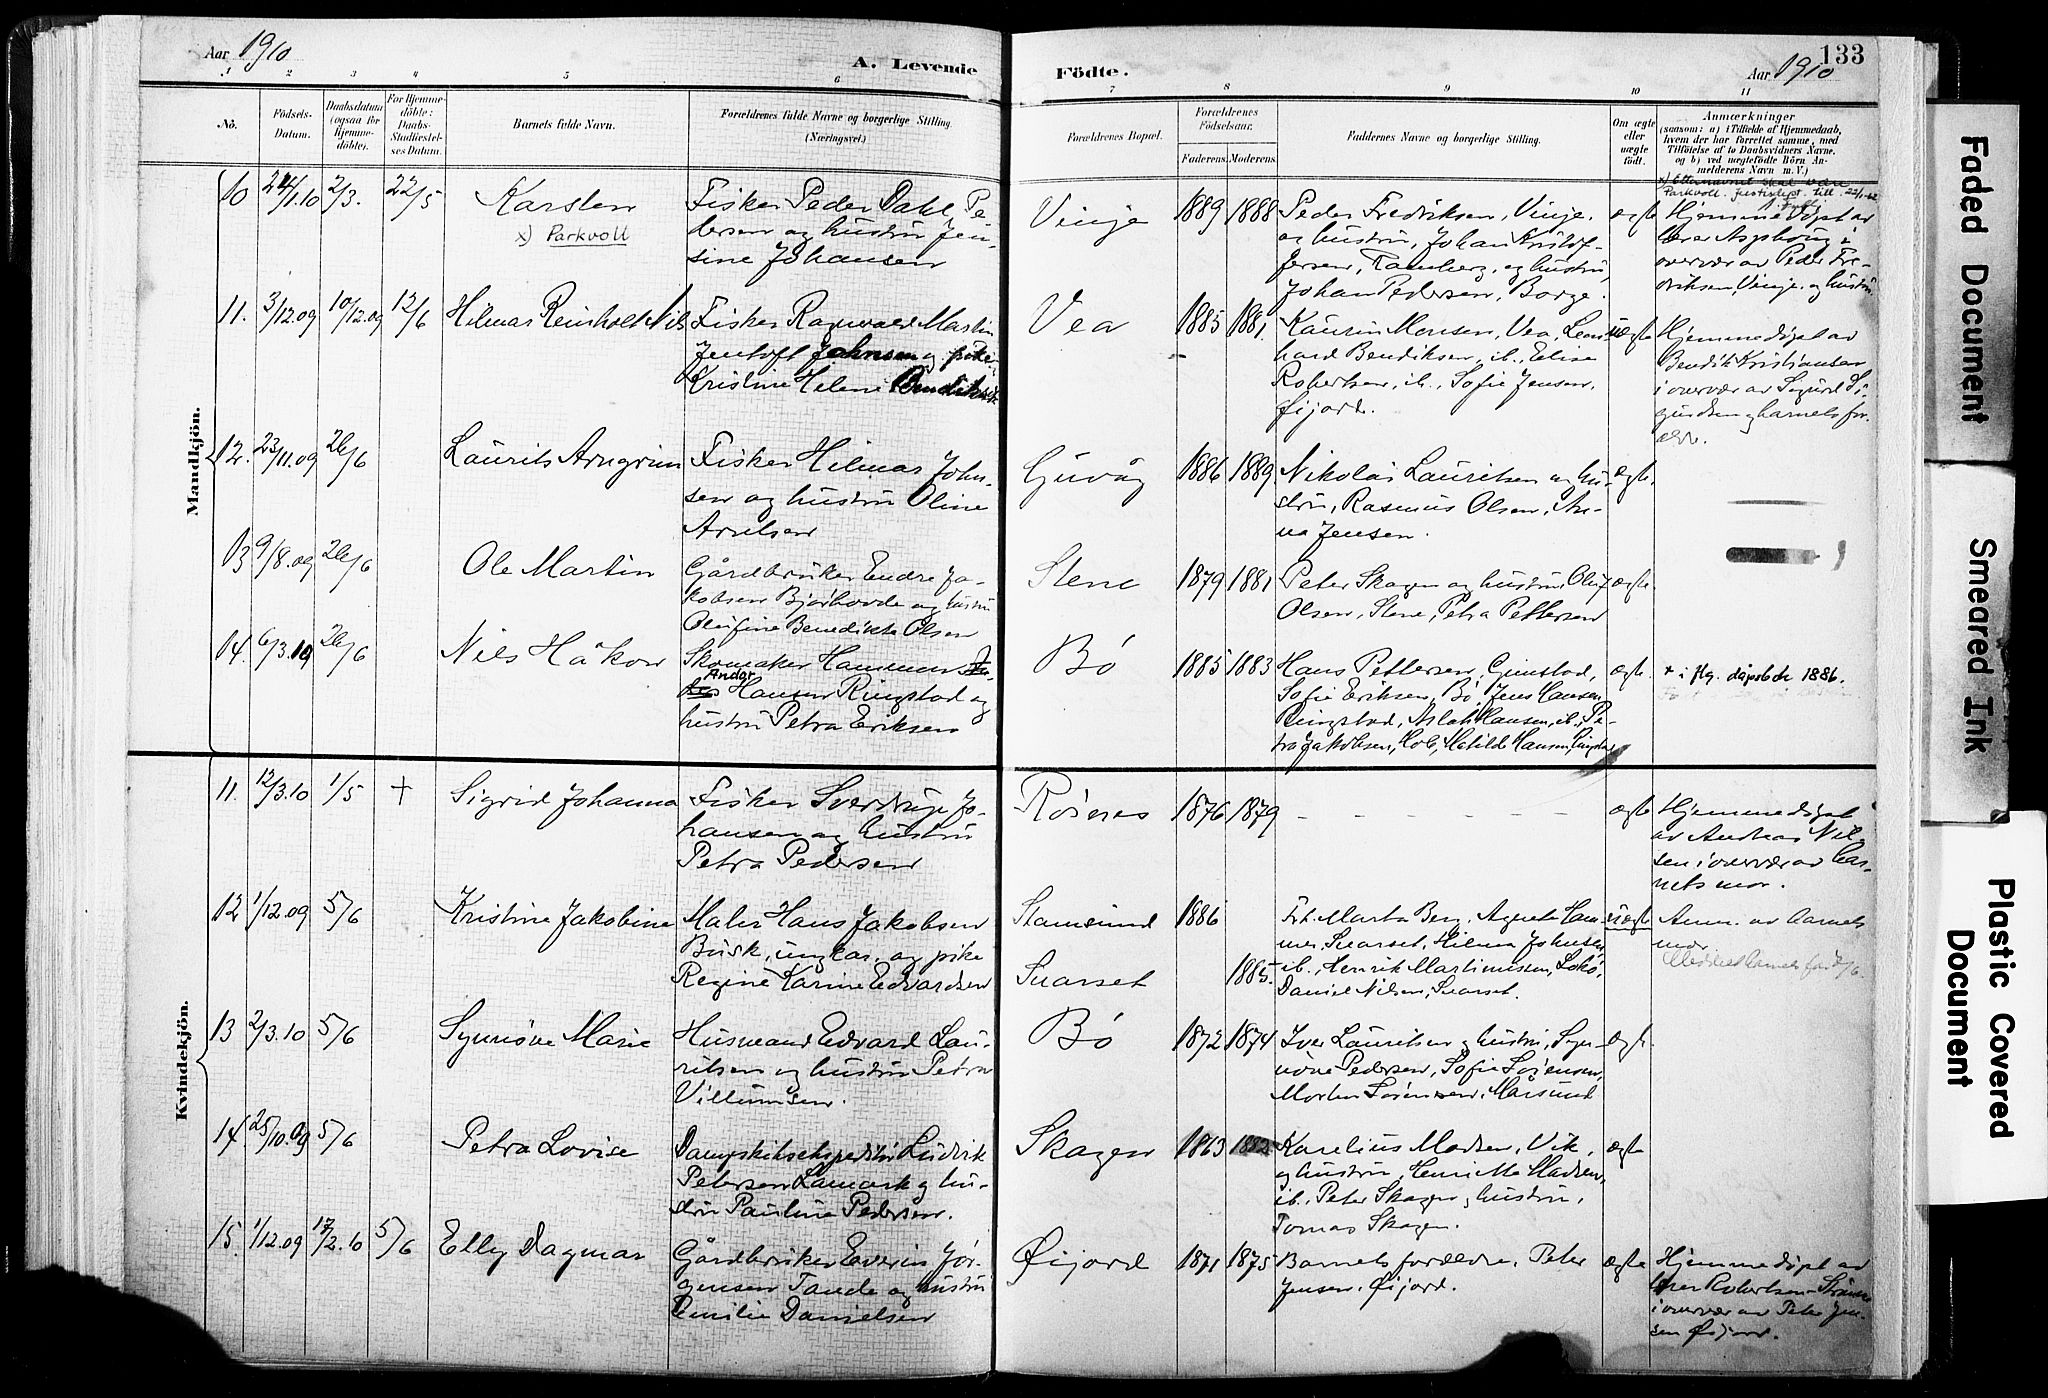 Aar 1910
A. Levende
Födte.
Aar 1910
133
1 2 3 4 5 6 7 8 9 10 11
No.
Födsels-
Datum.
Daabsdatum
(ogsaa for
Hjemme-
döbte).
For Hjemme-
döbte:
Daabs-
Stadfæstel-
ses Datum.
Barnets fulde Navn.
Forældrenes fulde Navne og borgerlige Stilling.
(Næringsvei.)
Forældrenes Bopæl.
Forældrenes
Födselsaar.
Faderens. Moderens.
Faddernes Navne og borgerlige Stilling.
Om ægte
eller
uægte
födt.
Anmærkninger
(saasom: a) i Tilfælde af Hjemmedaab,
hvem der har forrettet samme, med
Tilföielse af to Daabsvidners Navne,
og b) ved uægtefödte Börn An-
melderens Navn m. V.)
Mandkjön.
10 24/1.10 2/3. 22/5
Karsten
x) Parkvoll
Fisker Peder Dahl Pe-
dersen og hustru Jen-
sine Johansen
Vinje 1889 1888
Peder Fredriksen, Vinje.
og hustru, Johan Kristof-
fersen, Ramberg, og hustru,
Johan Pedersen, Borge.
ægte
x) Etternavnet skal være
Parkvoll.
Hjemmedöpt av
lærer
overvær av Peder Fre-
driksen, Vinje og hustru.
11. 3/12.09 10/12.09 12/6
Hilmar Reinholt Nils
Fisker Ragnvald Martin
Jentoft Johnsen og pike
Kristine Helene Bendiksen
Vea 1885 1881.
Laurin Monsen, Vea, Leon-
hard Bendiksen, ib., Elise
Robertsen, ib., Sofie Jensen,
Øijord.
uægte
Hjemmedöpt av
Bendik Kristiansen
i overvær av Sigurd Si-
gurdsen og barnets for-
ældr.
12. 23/11.09 26/6
Laurits Arngrim
Fisker Hilmar John-
sen og hustru Oline
Arntsen
Guvåg 1886 1889
Nikolai Lauritsen og hu-
stru, Rasmus Olsen, An-
na Jensen.
ægte.
13 9/8.09 26/6
Ole Martin
Gårdbruker Endre Ja-
kobsen Bjørhovde og hustru
Olufine Benedikte Olsen
Stene 1879 1881
Peter Skagen og hustru, Oluf
Olsen, Stene, Petra Pettersen
ægte.
14. 6/3.10 26/6
Nils Håkon
Skomaker Hammer
Andor
Hansen Ringstad og
hustru Petra Eriksen
Bö 1885 1883
Hans Pettersen, Grimstad,
Sofie Eriksen, Bö, Jens Hansen,
Ringstad, Aslak Hansen, ib., Pe-
tra Jakobsen, Hol, Matilde Hansen, Ringstad
ægte.
+ i flg. dåpsbok 1886.
Kvindekjön.
11. 12/3.10 1/5 +
Sigrid Johanna
Fisker Sverdrup Jo-
hansen og hustru
Petra Pedersen
Røsnes 1876 1879
- - - - - -
ægte
Hjemmedöpt
av Andreas Nil-
sen i overvær av bar-
nets mor.
12 1/12.09 5/6
Kristine Jakobine
Maler Hans Jakobsen
Busk, ungkar, og pike
Regine Karine Edvardsen
Stamsund 1886
Svarset 1885.
Frk. Marta Berg, Agnete Ham-
mer, Svarset, Hilma Johnsen,
ib., Henrik Martinussen, Lokö,
Daniel Nilsen, Svarset.
uægte
Anm. av barnets
mor
13 2/3.10 5/6
Synnöve Marie
Husmand Edvard Lau-
ritsen og hustru Petra
Villumsen.
Bö 1872 1874
Iver Lauritsen og hustru, Syn-
növe Pedersen, Sofie Sörensen,
Morten Sörensen, Mårsund
ægte.
14 25/10.09 5/6
Petra Lovise
Dampskibsekspeditör Ludvik
Petersen Lamark og hu-
stru Pauline Pedersen.
Skagen 1863 1882
Karelius Madsen, Vik,
og hustru, Henriette Madsen,
ib., Peter Skagen og hustru,
Tomas Skagen.
ægte
15. 1/12.09 17/2.10 5/6
Elly Dagmar
Gårdbruker Everin Jör-
gensen Tande og hustru
Emilie Danielsen
Øijord 1871 1875
Barnets forældre, Peter
Jensen, Øijord.
ægte
Hjemmedöpt av
lærer Robertsen
i overvær av Peter Jen-
sen Øijord.
Faded Document
Smeared Ink
Plastic Covered
Document